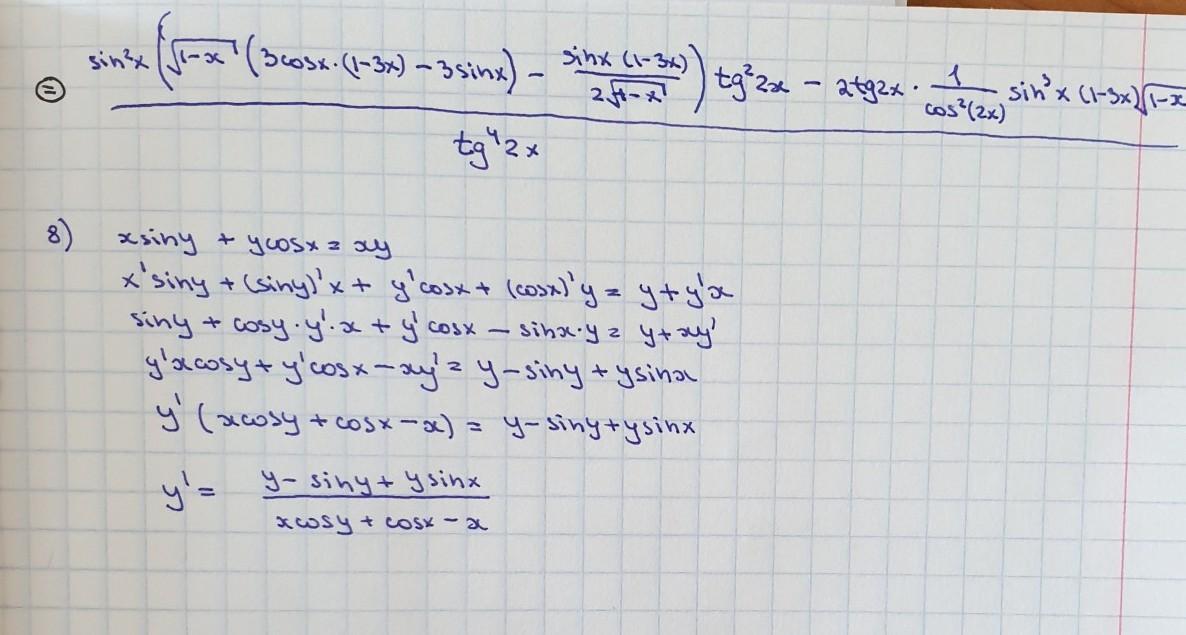 = sin²x (√(1-x) (3cosx·(1-3x) - 3sinx) - sinx (1-3x) / 2√(1-x)) tg²2x - 2tg2x · 1 / cos²(2x) sin³x (1-3x)√(1-x)
tg⁴2x
8) xsiny + ycosx = xy
x'siny + (siny)'x + y'cosx + (cosx)'y = y + y'x
siny + cosy·y'·x + y'cosx - sinx·y = y + xy'
y'xcosy + y'cosx - xy' = y - siny + ysinx
y' (xcosy + cosx - x) = y - siny + ysinx
y' = y - siny + ysinx / xcosy + cosx - x